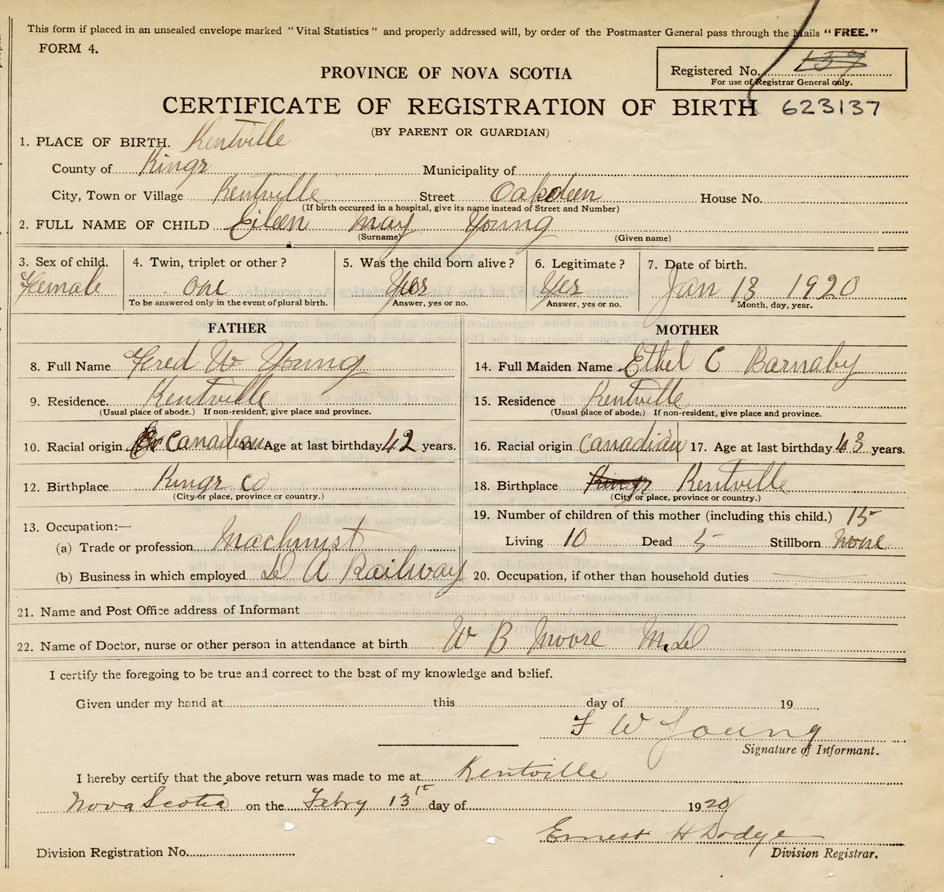 This form if placed in an unsealed envelope marked "Vital Statistics" and properly addressed will, by order of the Postmaster General pass through the Mails "FREE."
FORM 4.
PROVINCE OF NOVA SCOTIA
Registered No. 137
For use of Registrar General only.
CERTIFICATE OF REGISTRATION OF BIRTH 623137
(BY PARENT OR GUARDIAN)
1. PLACE OF BIRTH. Kentville
County of Kings Municipality of
City, Town or Village Kentville Street Oakdeen House No.
(If birth occurred in a hospital, give its name instead of Street and Number)
2. FULL NAME OF CHILD Eileen May Young
(Surname) (Given name)
3. Sex of child. 4. Twin, triplet or other? 5. Was the child born alive? 6. Legitimate? 7. Date of birth.
Female one Yes Yes Jan 13 1920
To be answered only in the event of plural birth. Answer, yes or no. Answer, yes or no. Month, day, year.
FATHER MOTHER
8. Full Name Fred W Young 14. Full Maiden Name Ethel C Barnaby
9. Residence. Kentville 15. Residence Kentville
(Usual place of abode.) If non-resident, give place and province. (Usual place of abode.) If non-resident, give place and province.
10. Racial origin Canadian 11. Age at last birthday 42 years. 16. Racial origin Canadian 17. Age at last birthday 43 years.
12. Birthplace Kings Co 18. Birthplace Kings Kentville
(City or place, province or country.) (City or place, province or country.)
19. Number of children of this mother (including this child.) 15
13. Occupation:—
(a) Trade or profession Machinist Living 10 Dead 5 Stillborn None
(b) Business in which employed D A Railway 20. Occupation, if other than household duties
21. Name and Post Office address of Informant
22. Name of Doctor, nurse or other person in attendance at birth W B Moore M.D
I certify the foregoing to be true and correct to the best of my knowledge and belief.
Given under my hand at this day of 19
F W Young
Signature of Informant.
I hereby certify that the above return was made to me at Kentville
Nova Scotia on the Febry 13th day of 1920
Ernest H Dodge
Division Registration No. Division Registrar.